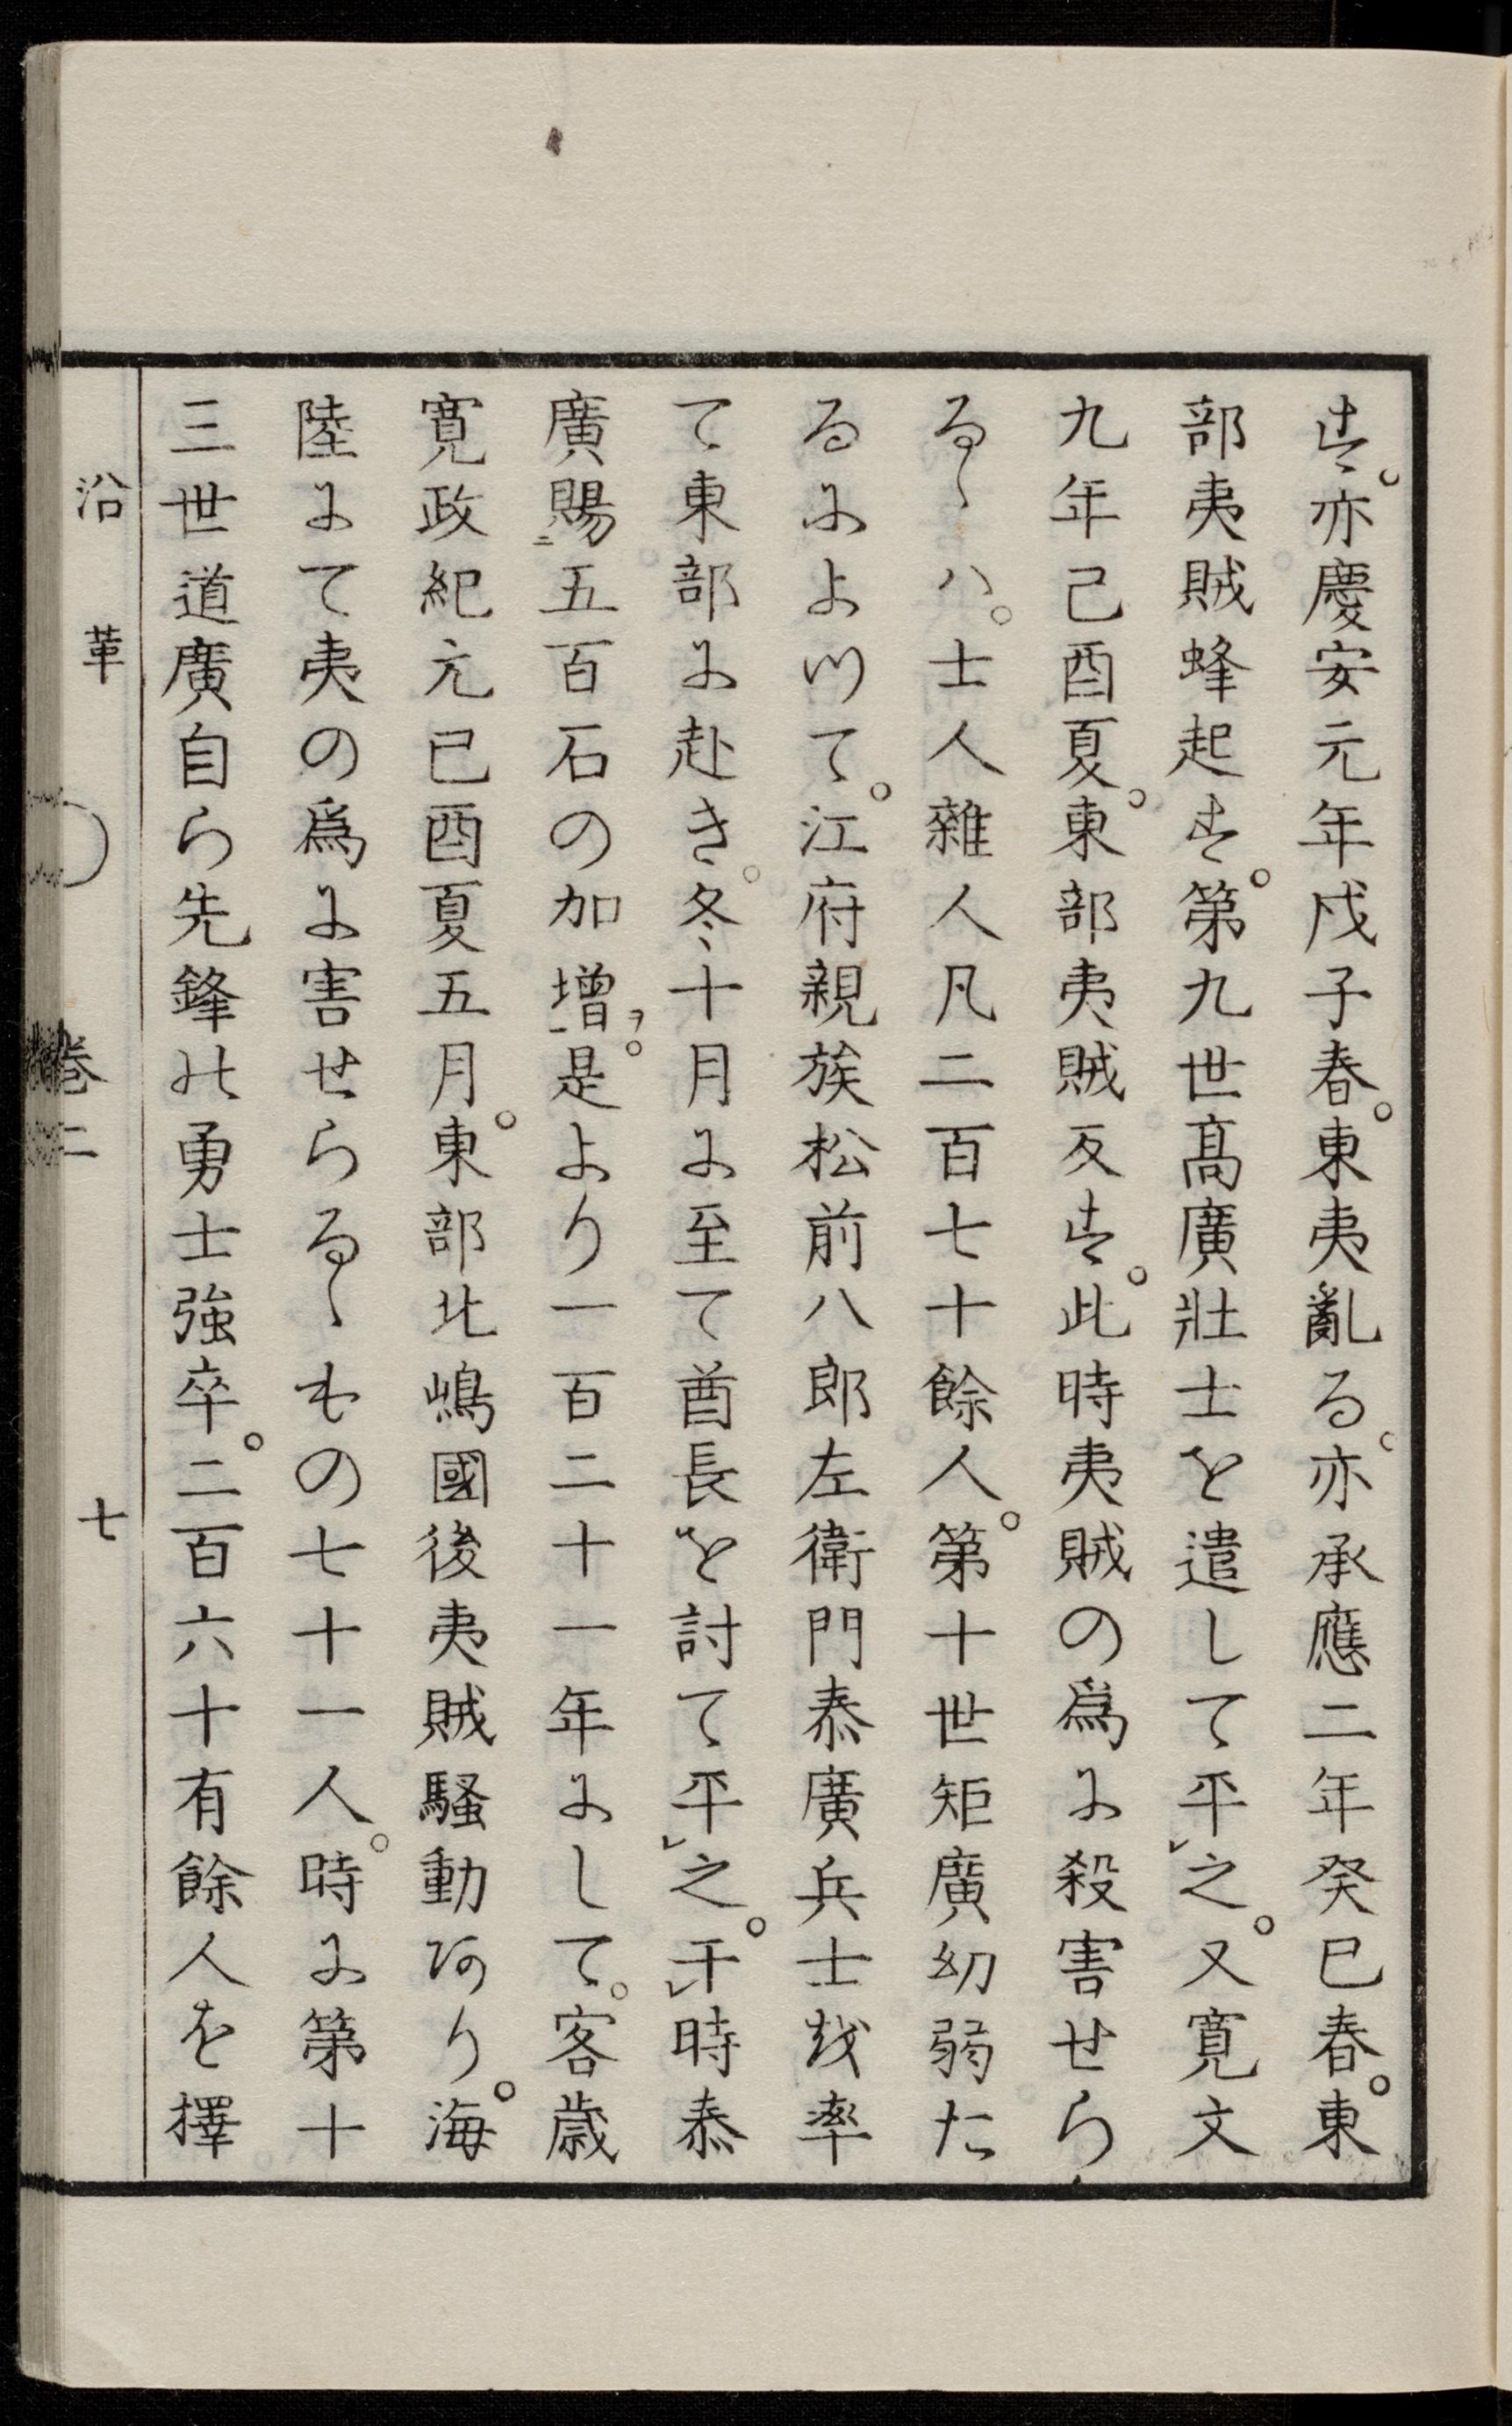 す。亦慶安元年戊子春。東夷亂る。亦承應二年癸巳春。東
部夷賊蜂起す。第九世髙廣壯士を遣して平㆑之。又寛文
九年己酉夏。東部夷賊反す。此時夷賊の爲に殺害せら
るゝハ。士人雜人凡二百七十餘人。第十世矩廣幼弱た
るによつて。江府親族松前八郎左衛門泰廣兵士を率
て東部に赴き。冬十月に至て酋長を討て平㆑之。于㆑時泰
廣賜㆓五百石の加増㆒ヲ。是より一百二十一年にして。客歳
寛政紀元己酉夏五月。東部北嶋國後夷賊騷動あり。海
陸にて夷の爲に害せらるゝもの七十一人。時に第十
三世道廣自ら先鋒の勇士強卒。二百六十有餘人を擇
沿革 卷二 七